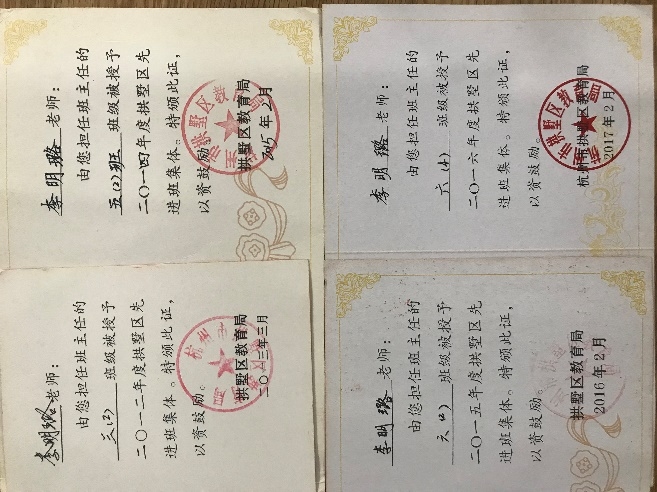 李明璐 老师：
由您担任班主任的
五(2)班 班级被授予
二〇一四年度拱墅区先
进班集体。特颁此证，
以资鼓励。
拱墅区教育局
2015年2月
李明璐 老师：
由您担任班主任的
班级被授予
二〇一六年度拱墅区先
进班集体。特颁此证，
以资鼓励。
杭州市拱墅区教育局
2017年2月
李明璐 老师：
由您担任班主任的
三(2) 班级被授予
二〇一二年度拱墅区先
进班集体。特颁此证，
以资鼓励。
拱墅区教育局
二〇一三年三月
李明璐 老师：
由您担任班主任的
班级被授予
二〇一五年度拱墅区先
进班集体。特颁此证，
以资鼓励。
拱墅区教育局
2016年2月